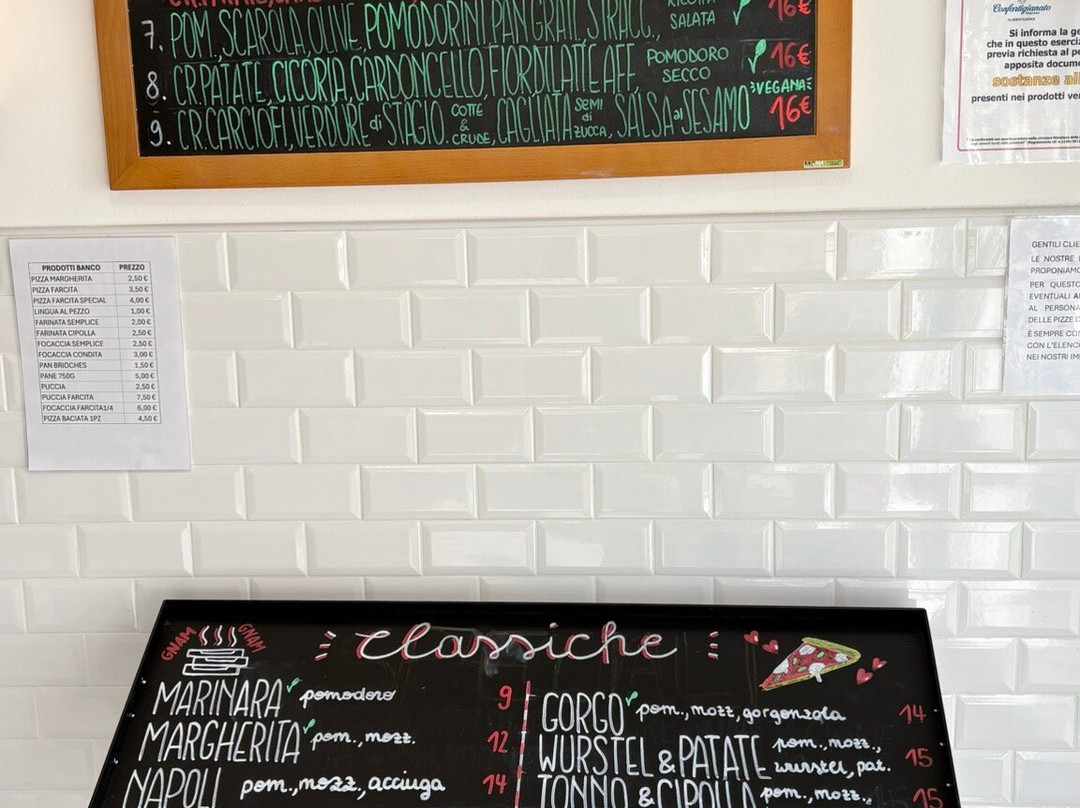 7. POM., SCAROLA, OLIVE, POMODORINI, PAN GRAT., STRACC.,
SALATA 16€
8. CR.PATATE, CICORIA, CARDONCELLO, FIORDILATTE AFF., POMODORO SECCO 16€
9. CR.CARCIOFI, VERDURE di STAGIO. COTTE & CRUDE, CAGLIATA SEMI di ZUCCA, SALSA al SESAMO VEGANA 16€
Confartigianato
Imprese
ALIMENTAZIONE
Si informa la
che in questo
previa richiesta al
apposita
sostanze
presenti nei prodotti
PRODOTTI BANCO PREZZO
PIZZA MARGHERITA 2,50 €
PIZZA FARCITA 3,50 €
PIZZA FARCITA SPECIAL 4,00 €
LINGUA AL PEZZO 1,00 €
FARINATA SEMPLICE 2,00 €
FARINATA CIPOLLA 2,50 €
FOCACCIA SEMPLICE 2,50 €
FOCACCIA CONDITA 3,00 €
PAN BRIOCHES 1,50 €
PANE 750G 5,00 €
PUCCIA 2,50 €
PUCCIA FARCITA 7,50 €
FOCACCIA FARCITA1/4 6,00 €
PIZZA BACIATA 1PZ 4,50 €
GENTILI
LE NOSTRE
PROPONIAMO
PER QUESTO
EVENTUALI
AL
DELLE PIZZE
È SEMPRE
CON L'ELENCO
NEI NOSTRI
GNAM GNAM
classiche
MARINARA pomodoro 9
MARGHERITA pom., mozz. 12
NAPOLI pom., mozz., acciuga 14
GORGO pom., mozz., gorgonzola 14
WURSTEL & PATATE pom., mozz., wurstel, pat. 15
TONNO & CIPOLLA pom., mozz., 15